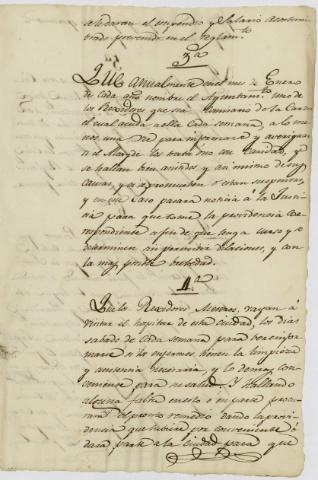 se le daran el emprendero y Salario acostum
brado prevenido en el reglamto
3.ª
Que annualmente en el mes de Enero
de cada año nombre el Ayuntamto uno de
los Rexidores que sea Semanero de la Carcel
el cual acuda a ella Cada semana, a lo me
nos una vez para informarse y averiguar
si el Alcayde los trata con caridad, y
se hallan bien asistidos y asi mismo de sus
Causas, y si se promueben o estan suspensas,
y en este Caso pasara noticia a la Justi
cia para que tome la providencia Co
rrespondiente a fin de que tenga curso y se
determinen sin permitir dilaciones, y con
la mayr posible brebedad.
4.ª
Que los Rexidores, Meseros, vayan á
visitar el hospital de esta Ciudad, los dias
sabado de Cada semana para ver e infor
marse si los enfermos tienen la limpieza
y asistencia necesaria, y lo demas con
veniente para su salud. Y Hallando
alguna falta en esto o en parte procu
raran el pronto remedio dando la provi
dencia que tubiere por conveniente ó
dara parte a la Ciudad para que